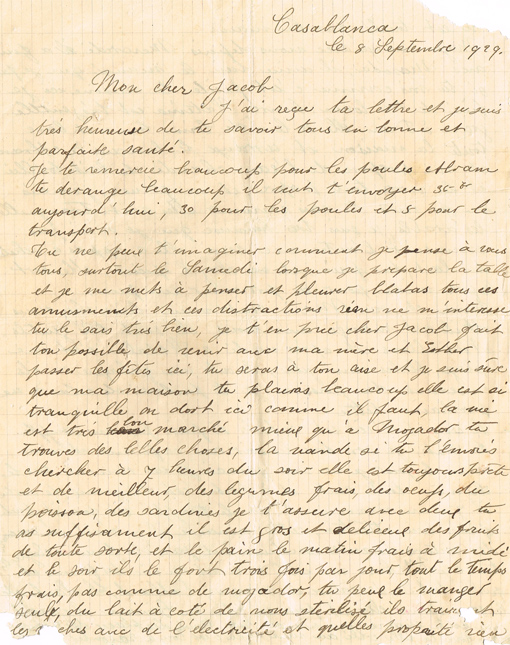 Casablanca
le 8 Septembre 1929.
Mon cher Jacob
J'ai reçue ta lettre et je suis
trés heureuse de te savoir tous en bonne et
parfaite santé.
Je te remercie beaucoup pour les poules
te derange beaucoup il veut t'envoyer 35
aujourd'hui, 30 pour les poules et 5 pour le
transport.
Tu ne peux t'imaginer comment je pense à vous
tous, surtout le Samedi lorsque je prepare la table
et je me mets à penser et pleurer tous ces
amusements et ces distractions rien ne m'interesse
tu le sais tres bien, je t'en prie cher Jacob fait
ton possible de venir avec ma mère et Esther
passer les fêtes ici, tu seras à ton aise et je suis sûre
que ma maison tu plairas beaucoup elle est si
tranquille on dort ici comme il faut, la vie
est trés bon marché mieux qu'à Mogador tu
trouves des belles choses, la viande si tu l'envoies
chercher à 7 heures du soir elle est toujours prete
et de meilleur, des legumes frais, des oeufs, du
poisson, des sardines je t'assure avec deux tu
as suffisament il est gros et delicieux des fruits
de toute sorte, et le pain le matin frais à midi
et le soir ils le font trois fois par jour, tout le temps
frais, pas comme de mogador, tu peux le manger
seul, du lait à coté de nous sterilisé ils traient
les vaches avec de l'électricité et quelles propreté rien